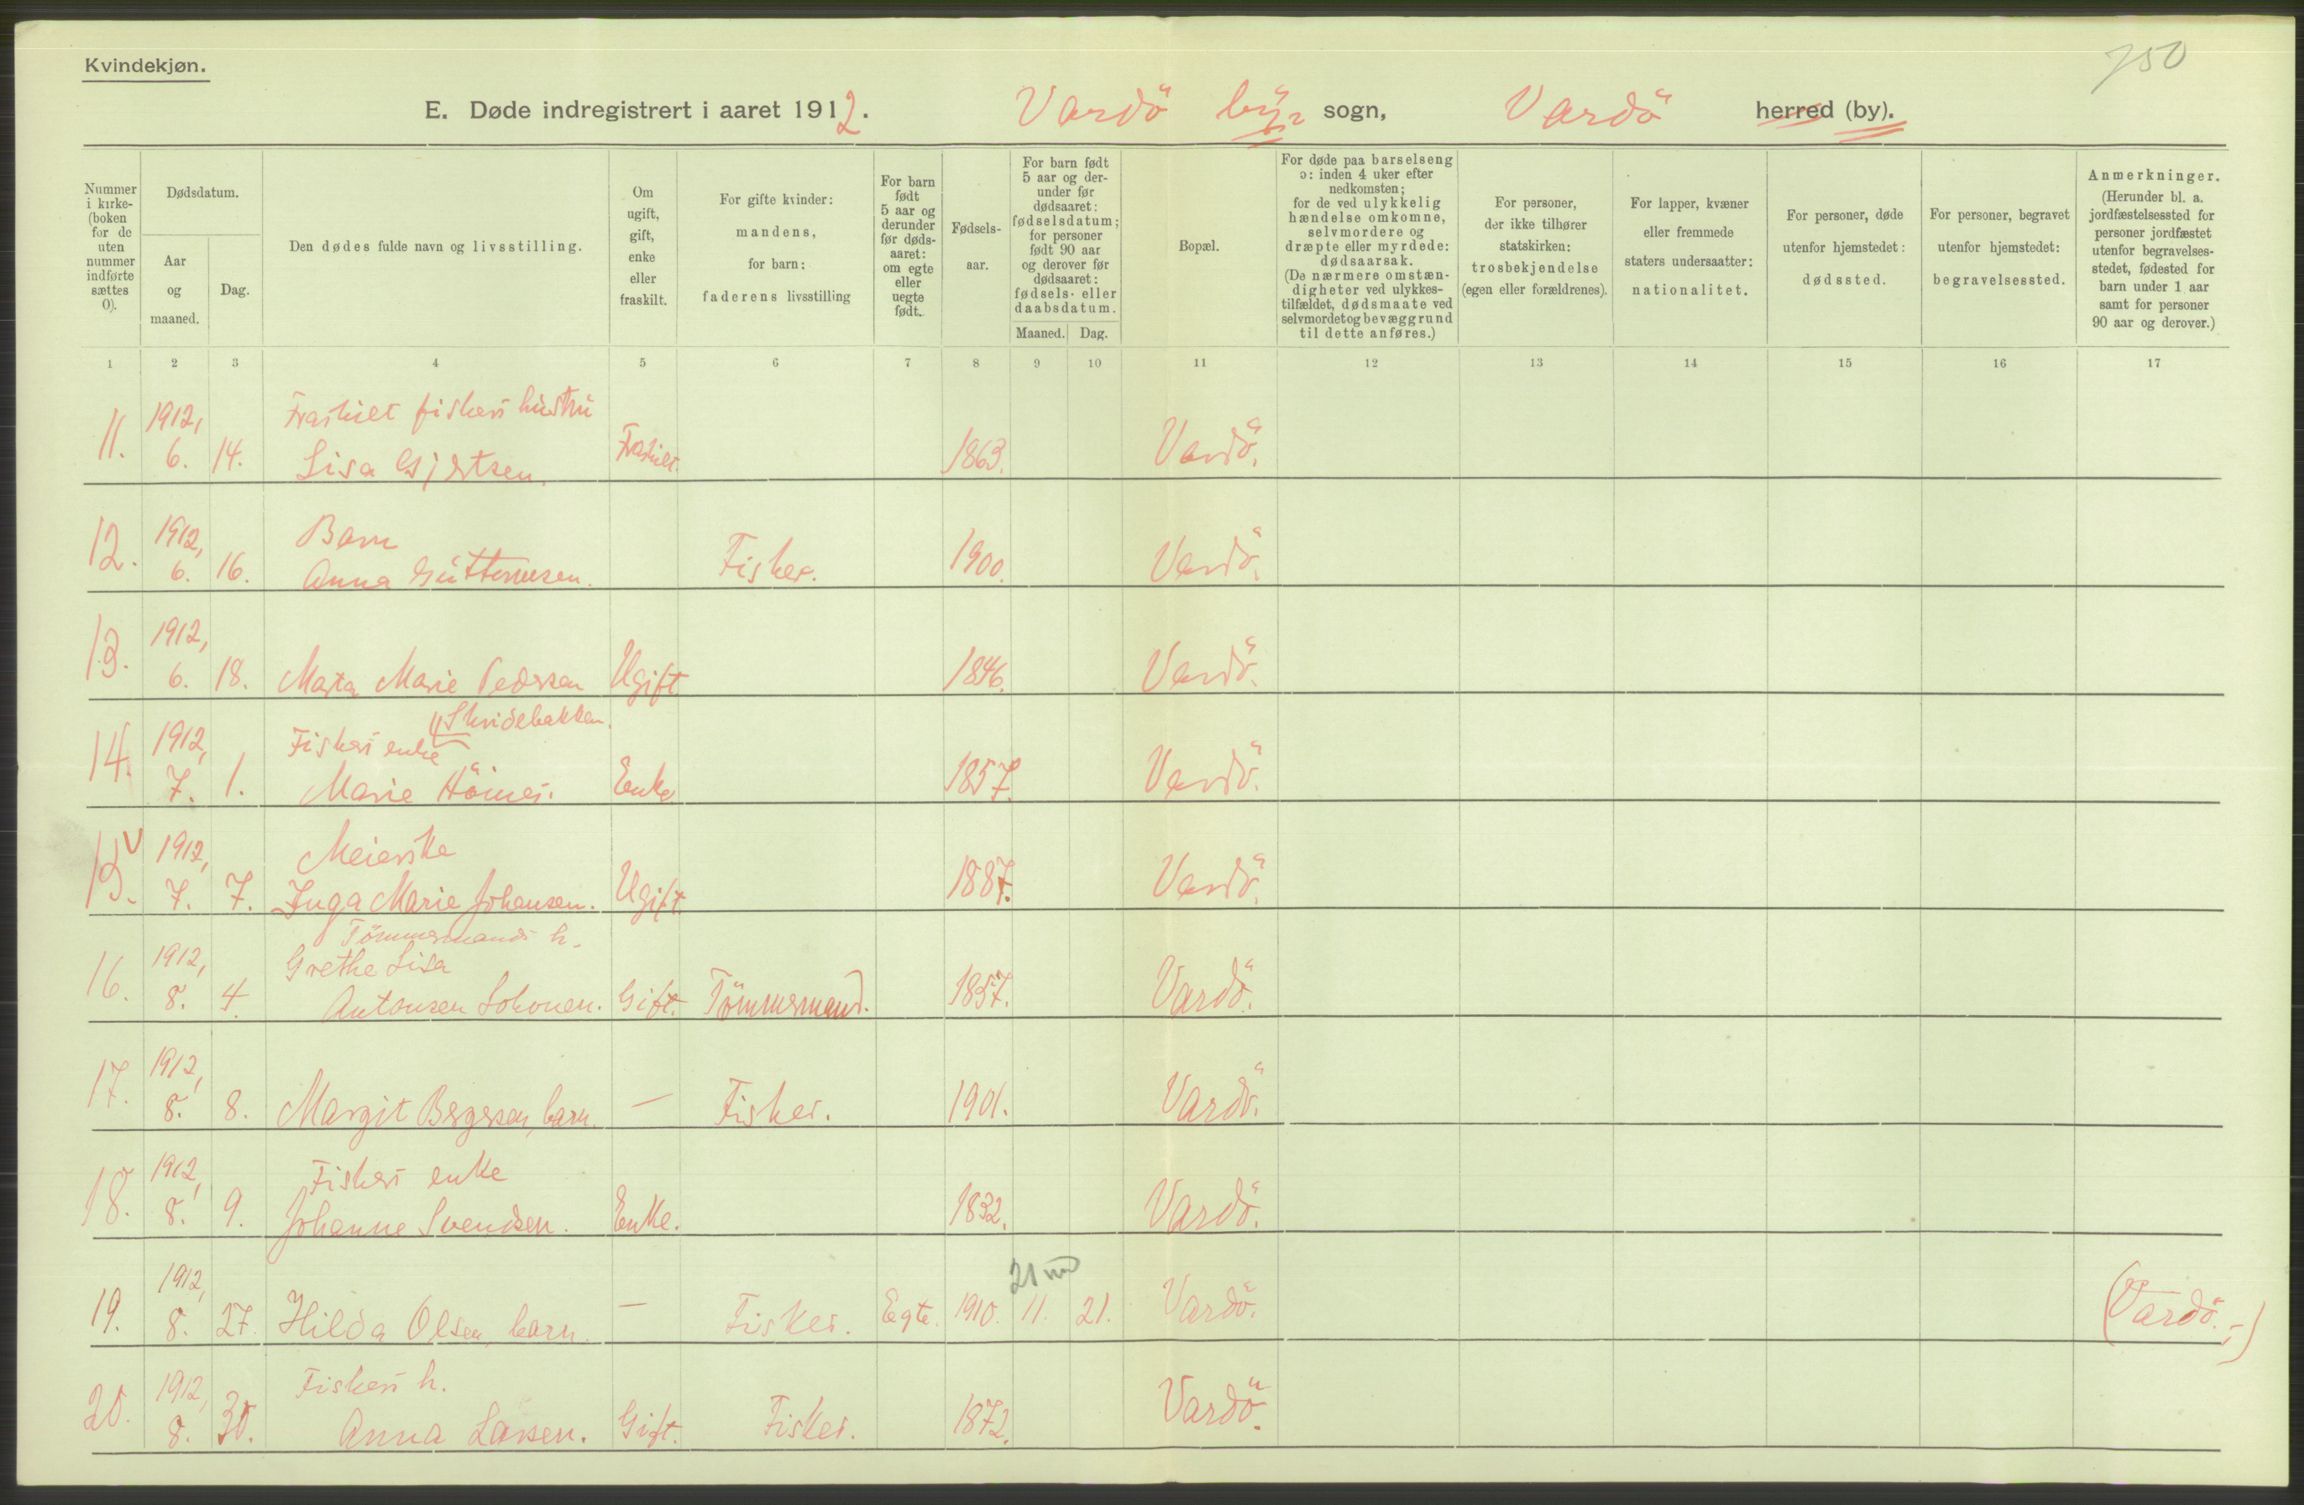 Kvindekjøn.
750
E. Døde indregistrert i aaret 1912. Vardö by sogn, Vardö herred (by).
Nummer i kirke- (boken for de uten nummer indførte sættes 0).
Dødsdatum.
Aar og maaned.
Dag.
Den dødes fulde navn og livsstilling.
Om ugift, gift, enke eller fraskilt.
For gifte kvinder: mandens, for barn: faderens livsstilling
For barn født 5 aar og derunder før dødsaaret: om egte eller uegte født.
Fødsels-aar.
For barn født 5 aar og derunder før dødsaaret: fødselsdatum; for personer født 90 aar og derover før dødsaaret: fødsels- eller daabsdatum.
Maaned. Dag.
Bopæl.
For døde paa barselseng ɔ: inden 4 uker efter nedkomsten; for de ved ulykkelig hændelse omkomne, selvmordere og dræpte eller myrdede: dødsaarsak. (De nærmere omstændigheter ved ulykkestilfældet, dødsmaate ved selvmordet og bevæggrund til dette anføres.)
For personer, der ikke tilhører statskirken: trosbekjendelse (egen eller forældrenes).
For lapper, kvæner eller fremmede staters undersaatter: nationalitet.
For personer, døde utenfor hjemstedet: dødssted.
For personer, begravet utenfor hjemstedet: begravelsessted.
Anmerkninger. (Herunder bl. a. jordfæstelsessted for personer jordfæstet utenfor begravelsesstedet, fødested for barn under 1 aar samt for personer 90 aar og derover.)
1 2 3 4 5 6 7 8 9 10 11 12 13 14 15 16 17
11. 1912, 6. 14. Fraskilt fiskers hustru
Lisa Gjertsen. Fraskilt. 1863. Vardö.
12. 1912, 6. 16. Barn
Anna Guttormsen. Fisker. 1900. Vardö.
13. 1912, 6. 18. Marta Marie Pedersen Ugift 1846. Vardö.
14. 1912, 7. 1. Fiskers enke Skridebakken.
Marie Höines. Enke 1857. Vardö.
15. 1912, 7. 7. Meierske
Inga Marie Johansen. Ugift. 1887. Vardö.
Tömmermands h.
16. 1912, 8. 4. Grethe Lisa
Antonsen Lohonen. Gift. Tömmermand. 1857. Vardö.
17. 1912, 8. 8. Margit Bergersen, barn. — Fisker. 1901. Vardö.
18. 1912, 8. 9. Fiskers enke
Johanne Svendsen. Enke. 1832. Vardö.
21 m
19. 1912, 8. 27. Hilda Olsen, barn. — Fisker. Egte. 1910. 11. 21. Vardö. (Vardö.-)
20. 1912, 8. 30. Fiskers h.
Anna Larsen. Gift. Fisker. 1872. Vardö.